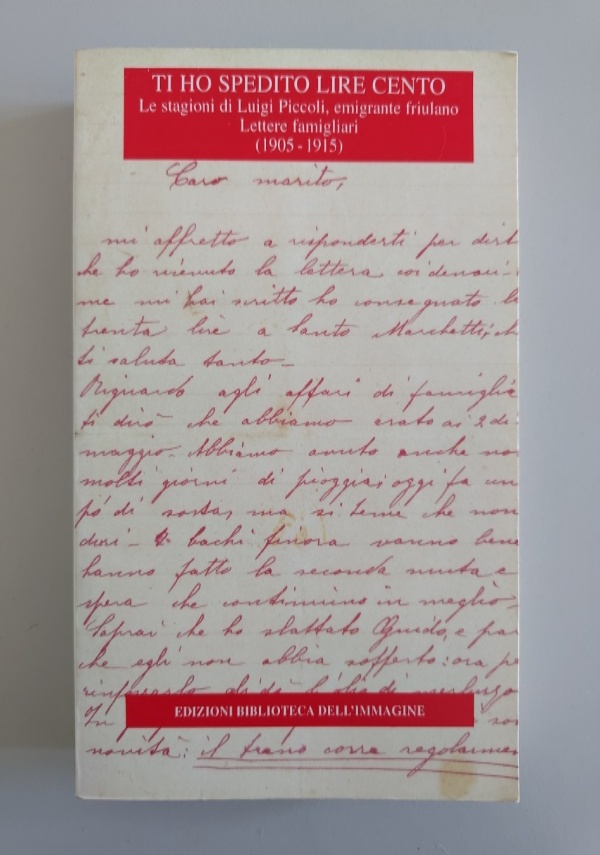 TI HO SPEDITO LIRE CENTO
Le stagioni di Luigi Piccoli, emigrante friulano
Lettere famigliari
(1905 - 1915)
Caro marito,
mi affretto a risponderti per dirt
che ho ricevuto la lettera coi denari -
me mi hai scritto ho consegnato le
trenta lire a Santo Marchetti, ch
ti saluta tanto -
Riguardo agli affari di famiglia
ti dirò che abbiamo arato ai 2 di
maggio - Abbiamo avuto anche noi
molti giorni di pioggia; oggi fa un
pó di sosta, ma si teme che non
duri - I bachi finora vanno bene
hanno fatto la seconda muta e
spera che continuino in meglio -
Saprai che ho slattato Guido, e par
che egli non abbia sofferto: ora pe
rinforzarlo gli dò l'olio di merluzzo
In
EDIZIONI BIBLIOTECA DELL'IMMAGINE
novità: il treno corre regolarmen